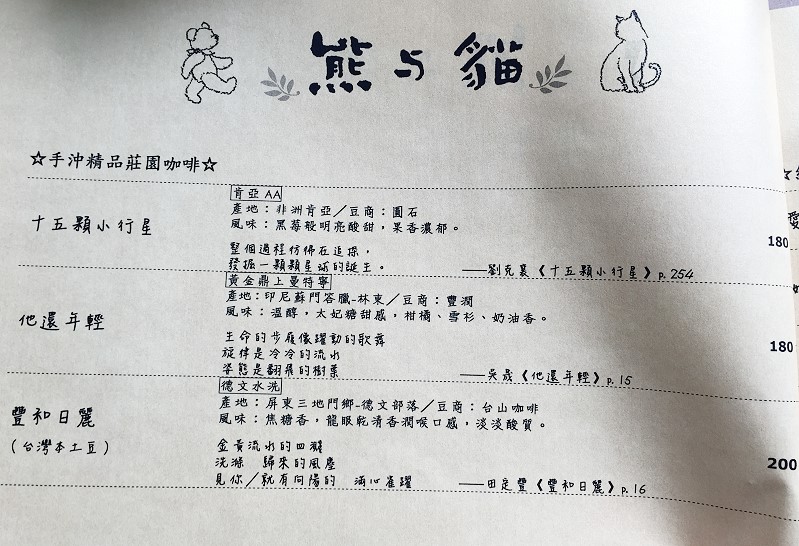 熊与貓
☆手沖精品莊園咖啡☆
十五顆小行星
肯亞AA
產地：非洲肯亞／豆商：圓石
風味：黑莓般明亮酸甜，果香濃郁。
整個過程彷彿在追探，
發掘一顆顆星球的誕生。 ——劉克襄《十五顆小行星》p.254
180
他還年輕
黃金鼎上曼特寧
產地：印尼蘇門答臘-林東／豆商：豐潤
風味：溫醇，太妃糖甜感，柑橘、雪杉、奶油香。
生命的步履像躍動的歌舞
旋律是泠泠的流水
姿態是翻飛的樹葉 ——吳晟《他還年輕》p.15
180
豐和日麗
（台灣本土豆）
德文水洗
產地：屏東三地門鄉-德文部落／豆商：台山咖啡
風味：焦糖香，龍眼乾清香潤喉口感，淡淡酸質。
金黃流水的四濺
洗滌 歸來的風塵
見你／就有向陽的 滿心雀躍 ——田定豐《豐和日麗》p.16
200
愛